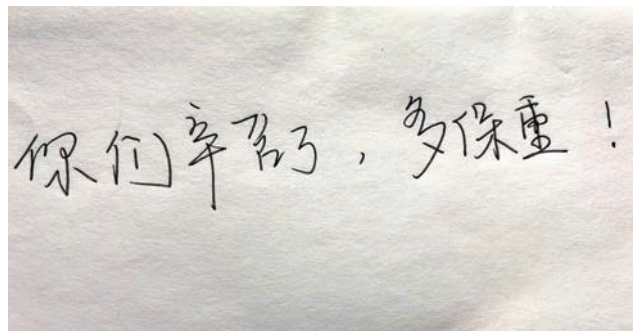 你们辛苦了，多保重！